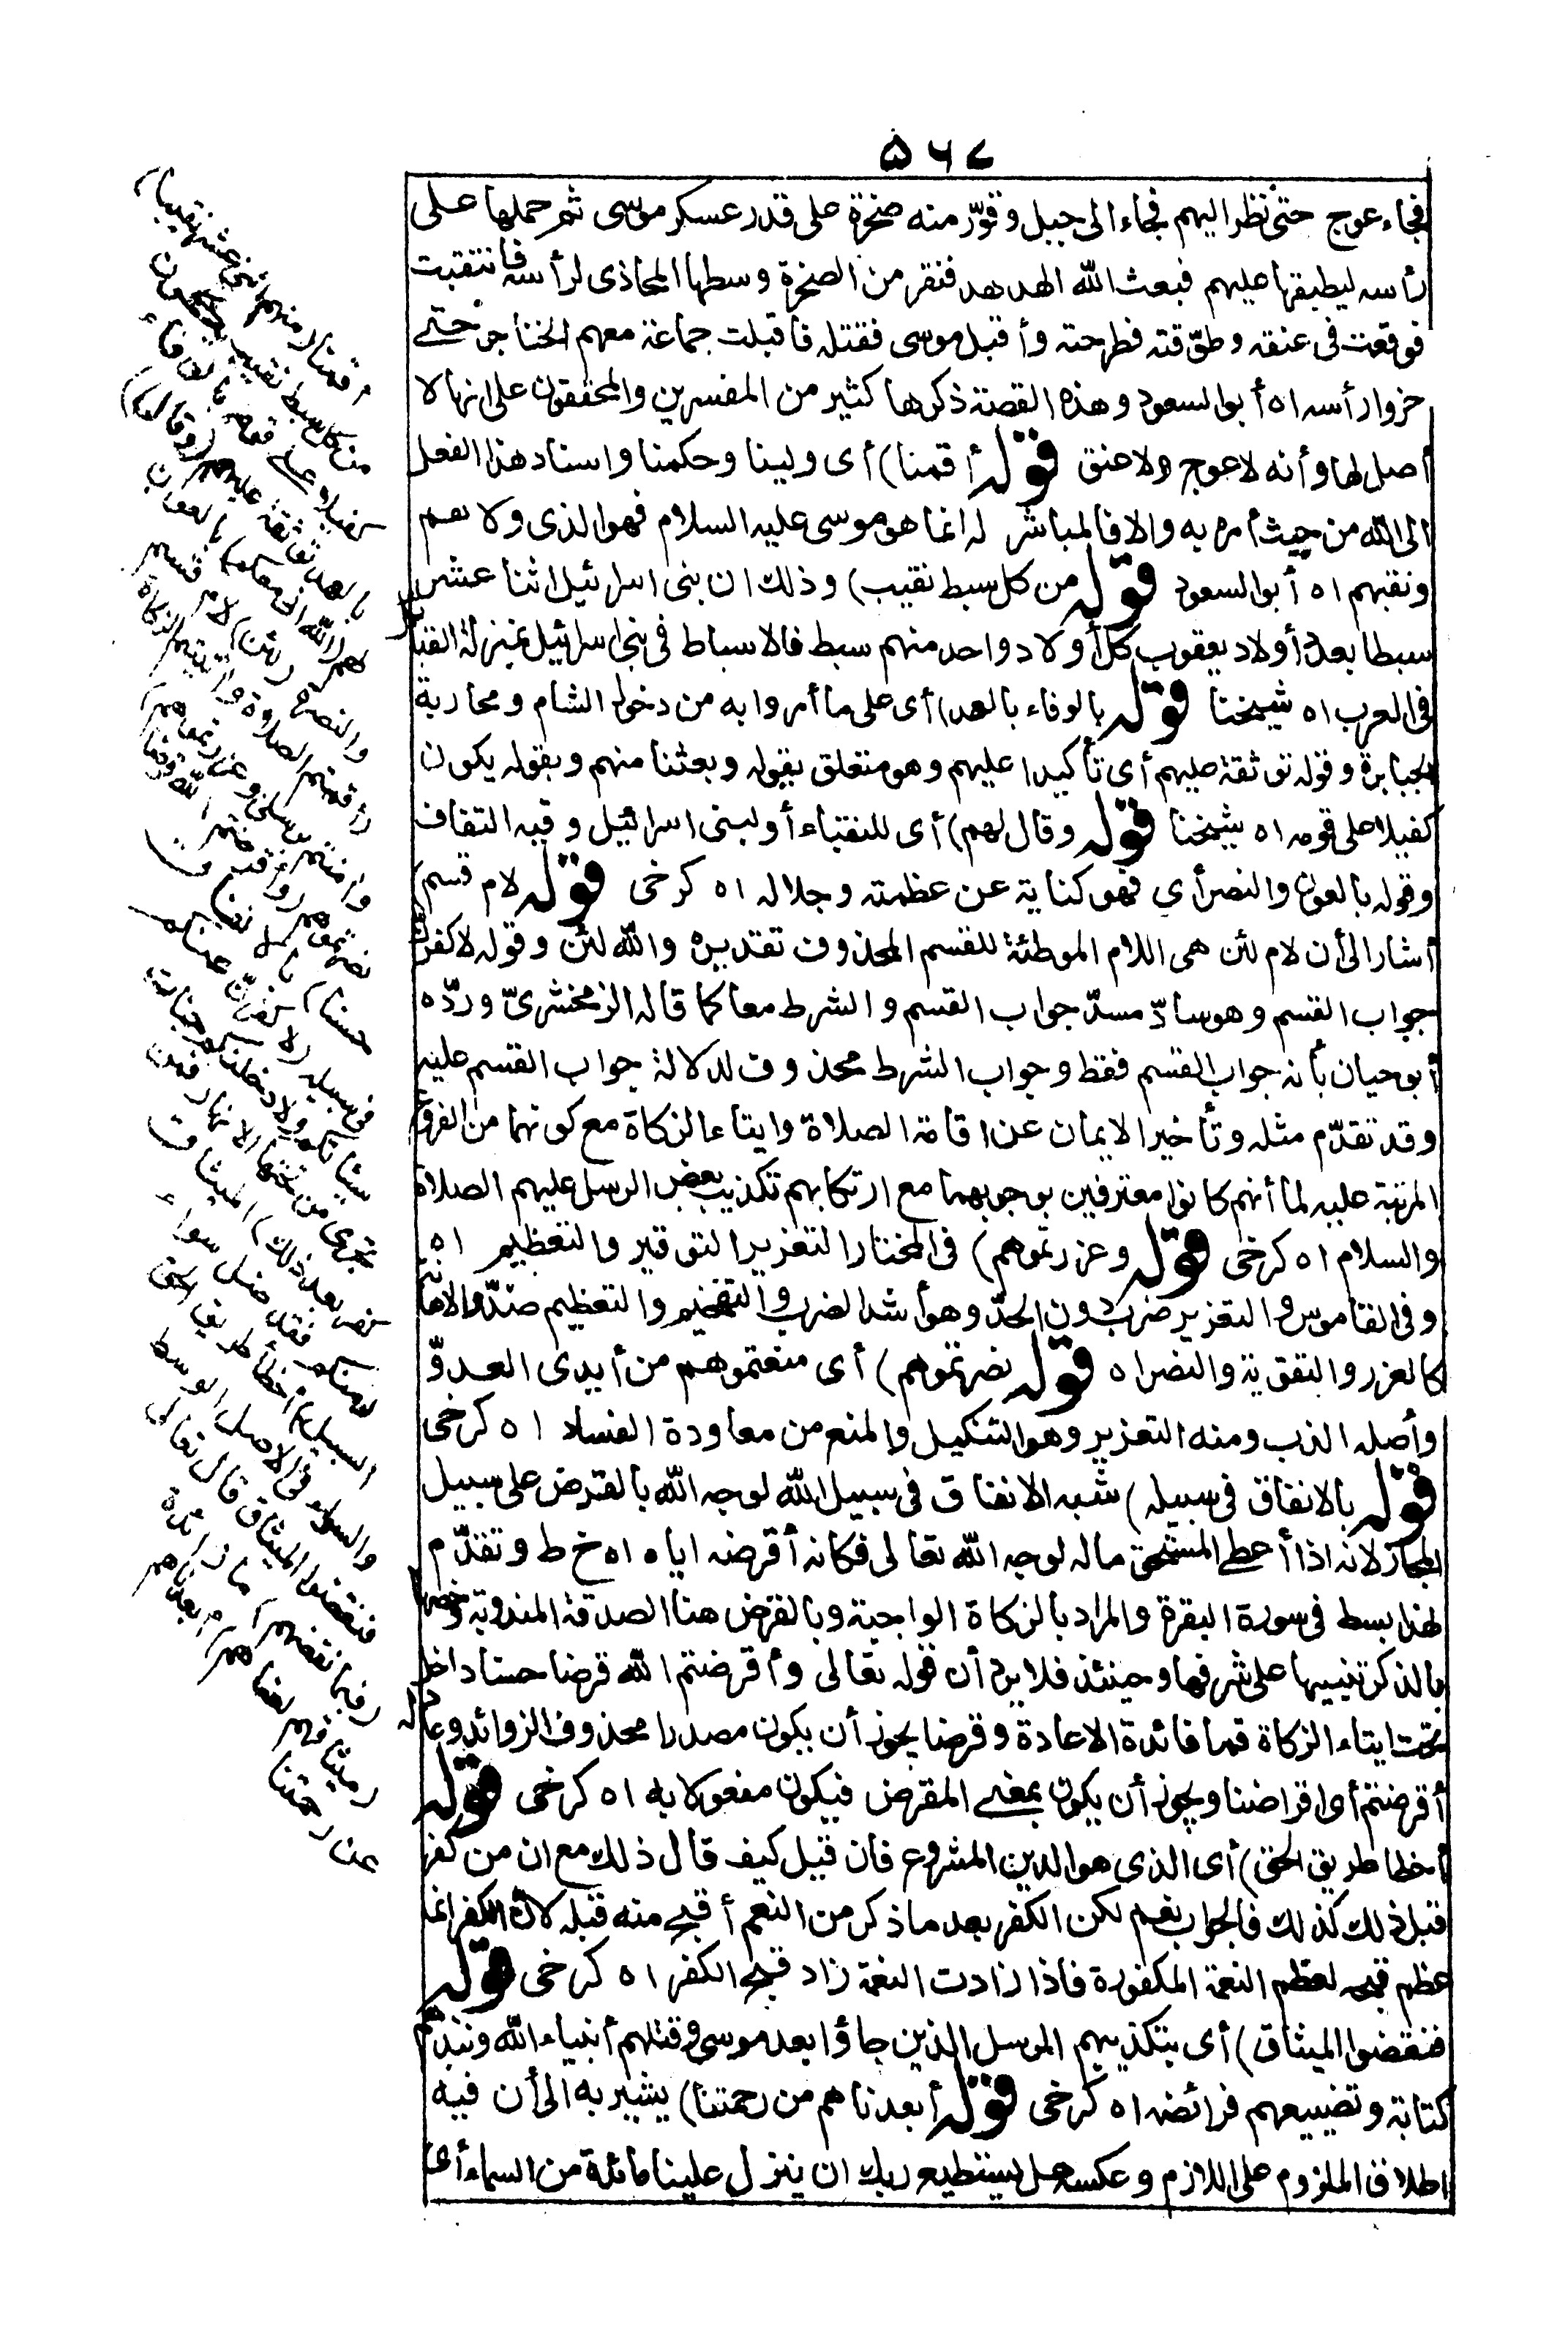 ۵۶۷
فجاء عوج حتى نظر اليهم فجاء الى جبل وقوّر منه صخرة على قدر عسكر موسى ثم حملها على
رأسه ليطبقها عليهم فبعث الله الهدهد فنقر من الصخرة وسطها المحاذى لرأسه فانتقبت
فوقعت فى عنقه وطوّقته فطرحته وأقبل موسى فقتله فاقبلت جماعة معهم الخناجر حتى
حزوا رأسه اه أبو السعود وهذه القصة ذكرها كثير من المفسرين والمحققون على انها لا
أصل لها وأنه لا عوج ولا عنق قوله أقمنا) أى ولينا وحكمنا واسناد هذا الفعل
الى الله من حيث أمره به والا فالمباشر له انما هو موسى عليه السلام فهو الذى ولاهم
ونقبهم اه أبو السعود قوله من كل سبط نقيب) وذلك ان بنى اسرائيل اثنا عشر
سبطا بعدد أولاد يعقوب كل أولاد واحد منهم سبط فالاسباط فى بنى اسرائيل بمنزلة القبائل
فى العرب اه شيخنا قوله بالوفاء بالعهد) أى على ما أمروا به من دخول الشام ومحاربة
الجبابرة وقوله توثقة عليهم أى تأكيدا عليهم وهو متعلق بقوله وبعثنا منهم وبقوله يكون
كفيلا على قومه اه شيخنا قوله وقال لهم) أى للنقباء أو لبنى اسرائيل وفيه التفات
وقوله بالعون والنصر أى فهو كناية عن عظمته وجلاله اه كرخى قوله لام قسم)
أشار الى أن لام لئن هى اللام الموطئة للقسم المحذوف تقديره والله لئن وقوله لاكفرن
جواب القسم وهو سادّ مسدّ جواب القسم والشرط معا كما قاله الزمخشرىّ وردّه
أبو حيان بأنه جواب القسم فقط وجواب الشرط محذوف لدلالة جواب القسم عليه
وقد تقدّم مثله وتأخير الايمان عن اقامة الصلاة وايتاء الزكاة مع كونهما من الفروع
المرتبة عليه لما أنهم كانوا معترفين بوجوبهما مع ارتكابهم تكذيب بعض الرسل عليهم الصلاة
والسلام اه كرخى قوله وعزرتموهم) فى المختار التعزير التوقير والتعظيم اه
وفى القاموس والتعزير ضرب دون الحدّ وهو أشد الضرب والتفخيم والتعظيم ضدّ والاعانة
كالعزر والتقوية والنصر اه قوله نصرتموهم) أى منعتموهم من أيدى العدوّ
وأصله الذب ومنه التعزير وهو التنكيل والمنع من معاودة الفساد اه كرخى
قوله بالانفاق فى سبيله) شبه الانفاق فى سبيل الله لوجه الله بالقرض على سبيل
المجاز لانه اذا أعطى المستحق ماله لوجه الله تعالى فكانه أقرضه اياه اه خ ط وتقدّم
لهذا بسط فى سورة البقرة والمراد بالزكاة الواجبة وبالقرض هنا الصدقة المندوبة وخصها
بالذكر تنبيها على شرفها وحينئذ فلا يرد أن قوله تعالى وأقرضتم الله قرضا حسنا داخل
تحت ايتاء الزكاة فما فائدة الاعادة وقرضا يجوز أن يكون مصدرا محذوف الزوائد وعامله
أقرضتم أى اقراضا ويجوز أن يكون بمعنى المقرض فيكون مفعولا به اه كرخى قوله
أخطا طريق الحق) أى الذى هو الدين المشروع فان قيل كيف قال ذلك مع ان من كفر
قبل ذلك كذلك فالجواب نعم لكن الكفر بعد ما ذكر من النعم أقبح منه قبله لان الكفر انما
عظم قبحه لعظم النعمة المكفورة فاذا زادت النعمة زاد قبح الكفر اه كرخى قوله
فنقضوا الميثاق) أى بتكذيبهم الرسل الذين جاؤا بعد موسى وقتلهم أنبياء الله ونبذهم
كتابة وتضييعهم فرائضه اه كرخى قوله أبعدناهم من رحمتنا) يشير به الى أن فيه
اطلاق الملزوم على اللازم وعكسه هل يستطيع ربك ان ينزل علينا مائدة من السماء أى
أقمنا (منهم اثنى عشر نقيبا)
من كل سبط نقيب يكون
كفيلا على قومه بالوفاء
بالعهد توثقة عليهم (وقال)
لهم (الله انى معكم) بالعون
والنصر (لئن) لام قسم
(أقمتم الصلاة وآتيتم الزكاة
وآمنتم برسلى وعزرتموهم)
نصرتموهم (وأقرضتم الله قرضا
حسنا) بالانفاق
فى سبيله (لاكفرن عنكم
سيئاتكم ولادخلنكم جنات
تجرى من تحتها الانهار فمن
كفر بعد ذلك) الميثاق
(منكم فقد ضل سواء
السبيل) أخطأ طريق الحق
والسواء فى الاصل الوسط
فنقضوا الميثاق قال تعالى
(فبما نقضهم) ما زائدة
(ميثاقهم لعناهم) أبعدناهم
من رحمتنا